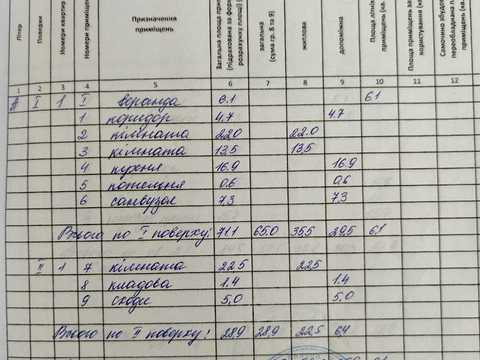 Літер
Поверхи
Номери квартир
Номери приміщень
Призначення приміщень
Загальна площа
(підрахована за
розрахунку площі)
загальна (сума гр. 8 та 9)
житлова
допоміжна
Площа
Площа приміщень
користування
Самочинно
переобладнана
1 2 3 4 5 6 7 8 9 10 11 12
А I 1 I веранда 6.1 6.1
1 коридор 4.7 4.7
2 кімната 22.0 22.0
3 кімната 13.5 13.5
4 кухня 16.9 16.9
5 котельня 0.6 0.6
6 санвузол 7.3 7.3
Всього по I поверху: 71.1 65.0 35.5 29.5 6.1
II 1 7 кімната 22.5 22.5
8 кладова 1.4 1.4
9 сходи 5.0 5.0
Всього по II поверху: 28.9 28.9 22.5 6.4